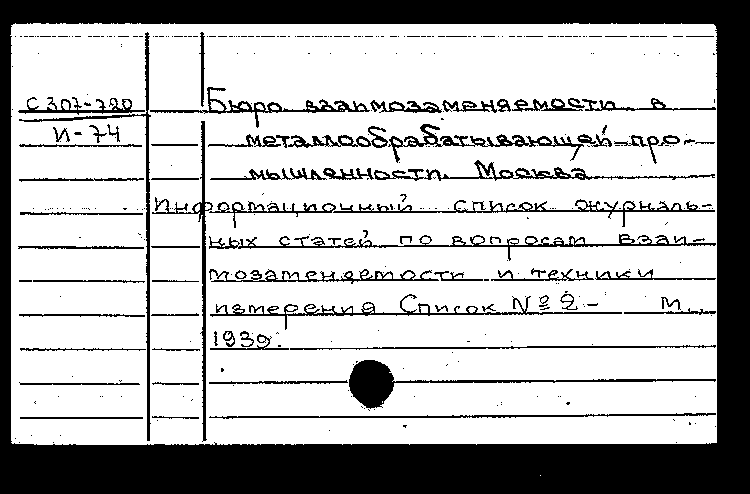 С307-720
И-74
Бюро взаимозаменяемости в
металлообрабатывающей про-
мышленности. Москва
Информационный список журналь-
ных статей по вопросам взаи-
мозаменяемости и техники
измерения Список № 2 - М.,
1939.